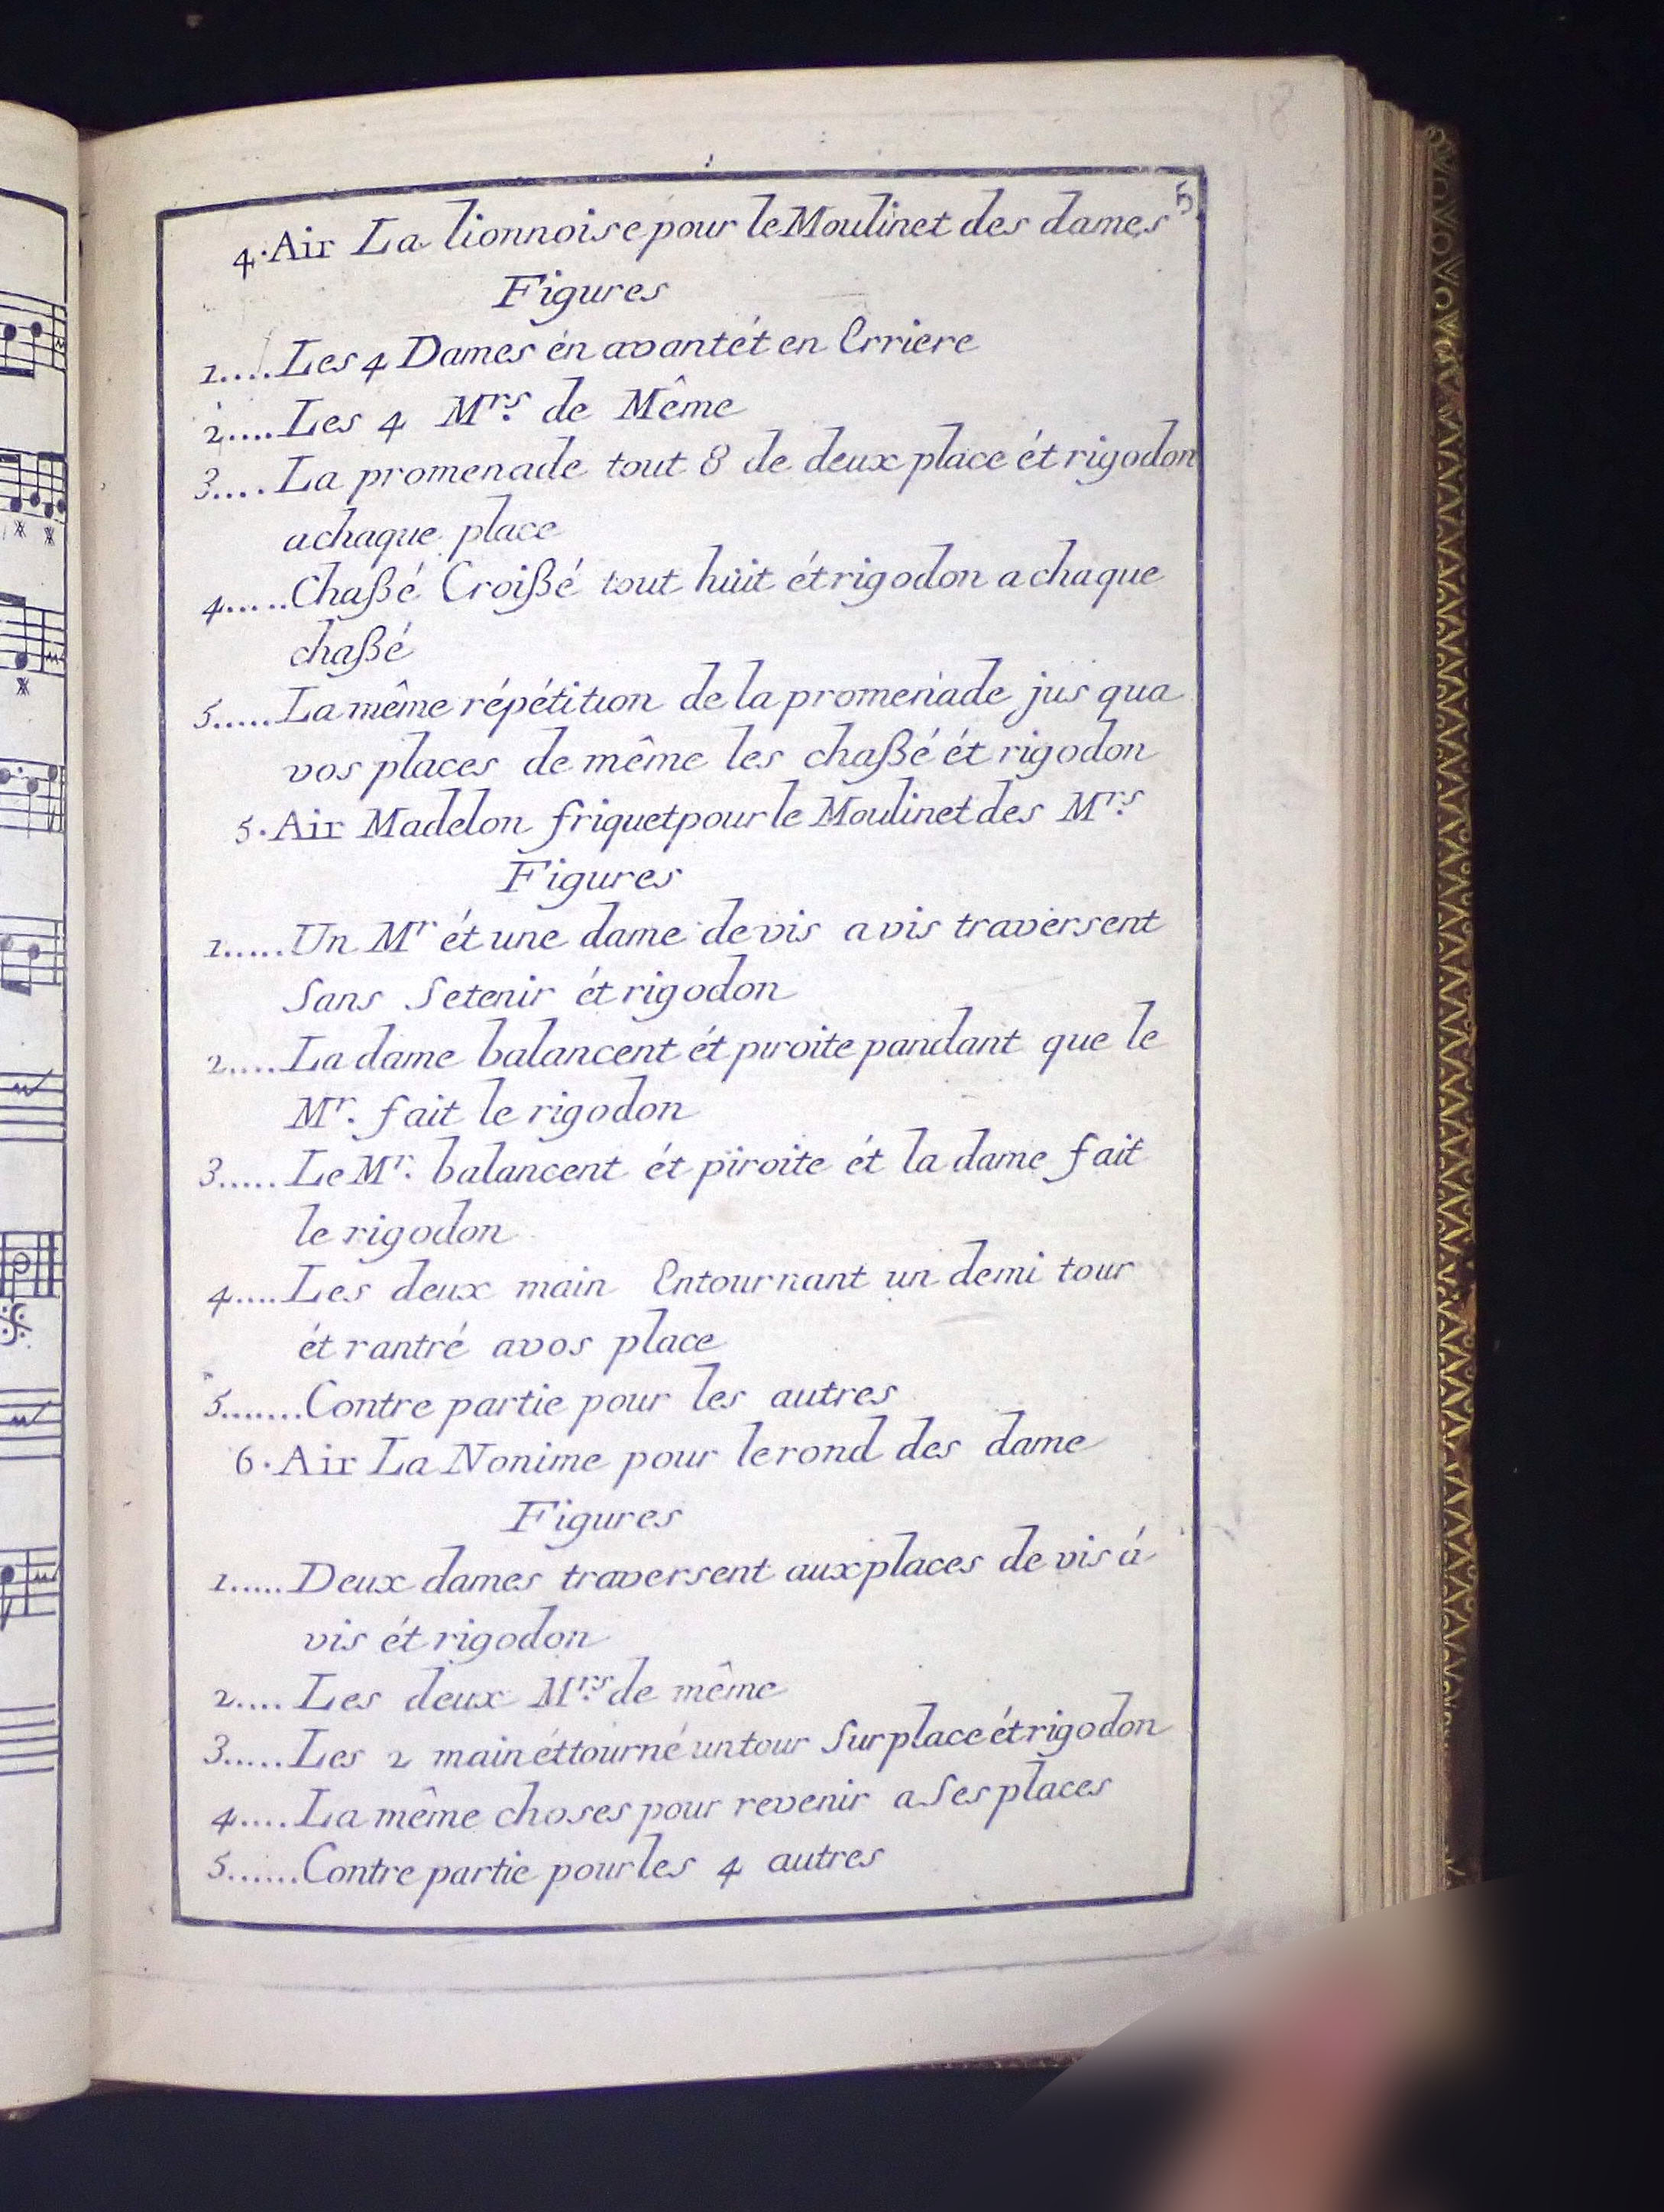 18
5
4. Air La lionnoise pour le Moulinet des dames
Figures
1.... Les 4 Dames én avant ét en Erriere
2..... Les 4 Mrs. de Même
3.... La promenade tout 8 de deux place ét rigodon
a chaque place
4..... Chaßé Croißé tout huit ét rigodon a chaque
chaßé
5..... La même répétition de la promenade jus qua
vos places de même les chaßé ét rigodon
5. Air Madelon friquet pour le Moulinet des Mrs.
Figures
1..... Un Mr ét une dame de vis a vis traversent
Sans Se tenir ét rigodon
2..... La dame balancent ét piroite pandant que le
Mr. fait le rigodon
3..... Le Mr. balancent ét piroite ét la dame fait
le rigodon
4.... Les deux main Entournant un demi tour
ét rantré a vos place
5....... Contre partie pour les autres
6. Air La Nonime pour le rond des dame
Figures
1..... Deux dames traversent aux places de vis á
vis ét rigodon
2.... Les deux Mrs. de même
3..... Les 2 main ét tourné un tour Sur place ét rigodon
4.... La même choses pour revenir a Ses places
5...... Contre partie pour les 4 autres